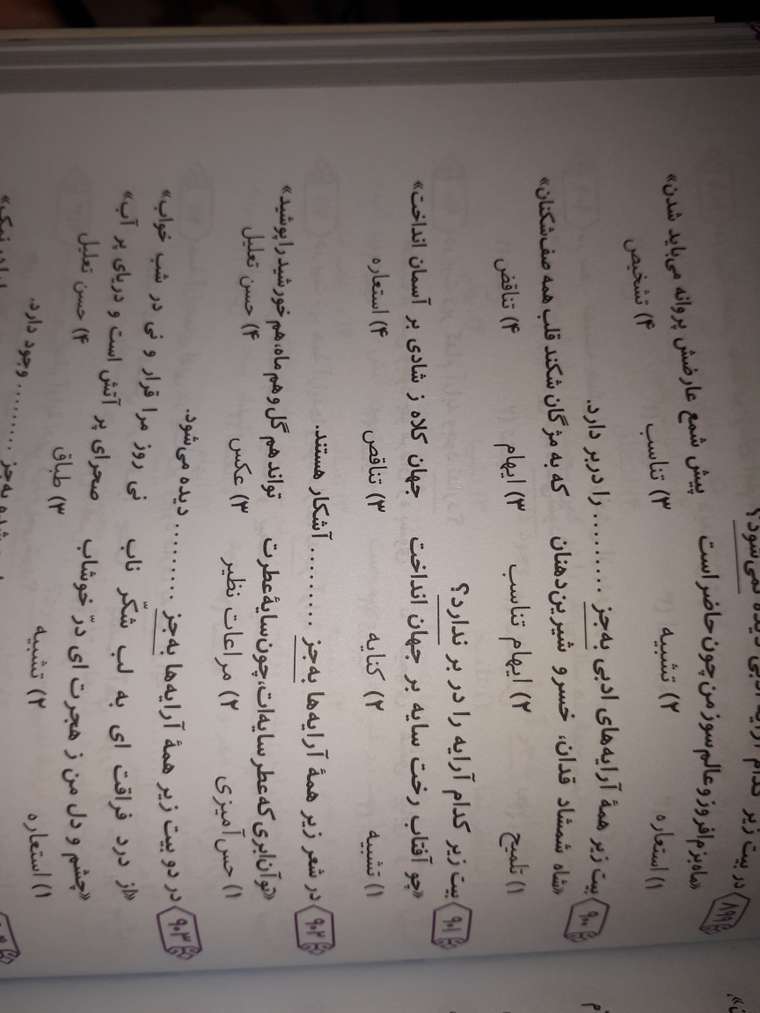 ۸۹۹ در بیت زیر کدام آرایهٔ ادبی دیده نمی‌شود؟
«ماه بزم‌افروز و عالم‌سوز من چون حاضر است پیش شمع عارضش پروانه می‌باید شدن»
۱) استعاره ۲) تشبیه ۳) تناسب ۴) تشخیص
۹۰۰ بیت زیر همهٔ آرایه‌های ادبی به‌جز ......... را دربر دارد.
«شاه شمشاد قدان، خسرو شیرین‌دهنان که به مژگان شکند قلب همه صف‌شکنان»
۱) تلمیح ۲) ایهام تناسب ۳) ایهام ۴) تناقض
۹۰۱ بیت زیر کدام آرایه را در بر ندارد؟
«چو آفتاب رخت سایه بر جهان انداخت جهان کلاه ز شادی بر آسمان انداخت»
۱) تشبیه ۲) کنایه ۳) تناقض ۴) استعاره
۹۰۲ در شعر زیر همهٔ آرایه‌ها به‌جز ......... آشکار هستند.
«تو آن ابری که عطر سایه‌ات، چون سایهٔ عطرت تواند هم گل و هم ماه، هم خورشید را پوشید»
۱) حس‌آمیزی ۲) مراعات نظیر ۳) عکس ۴) حسن تعلیل
۹۰۳ در دو بیت زیر همهٔ آرایه‌ها به‌جز ......... دیده می‌شود.
«از درد فراقت ای به لب شکّر ناب نی روز مرا قرار و نی در شب خواب»
«چشم و دل من ز هجرت ای درّ خوشاب صحرای پر آتش است و دریای پر آب»
۱) استعاره ۲) تشبیه ۳) طباق ۴) حسن تعلیل
وجود دارد.